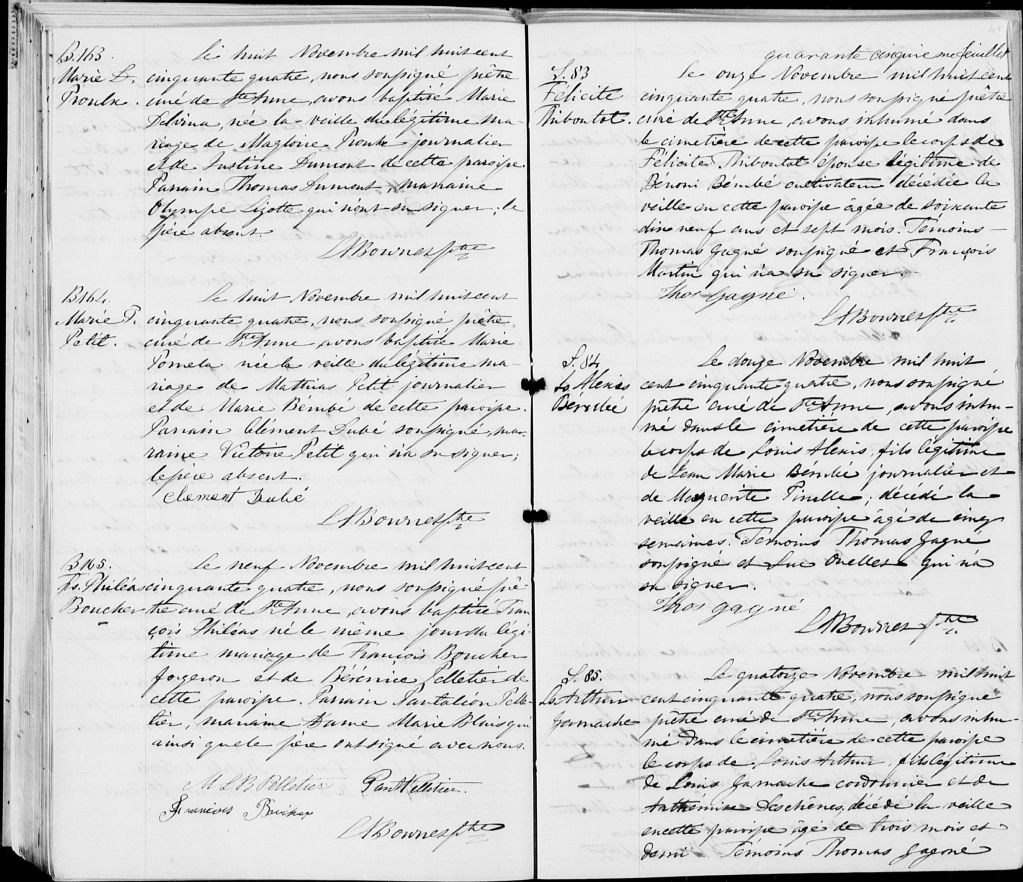 B.163.
Marie D.
Proulx.
Le huit Novembre mil huit cent
cinquante quatre, nous soussigné prêtre
curé de Ste Anne, avons baptisé Marie
Delvina, née la veille du légitime ma-
riage de Magloire Proulx journalier
et de Justine Dumont de cette paroisse.
Parrain Thomas Dumont, marraine
Olympe Lizotte qui n'ont su signer; le
père absent.
LABourret Ptre
B.164.
Marie P.
Petit.
Le huit Novembre mil huit cent
cinquante quatre, nous soussigné prêtre
curé de Ste Anne, avons baptisé Marie
Pomela née la veille du légitime ma-
riage de Mathias Petit journalier
et de Marie Bérubé de cette paroisse.
Parrain Clément Dubé soussigné, mar-
raine Victoire Petit qui n'a su signer;
le père absent.
Clement Dubé
LABourret Ptre
B.165.
Fs. Philéas
Boucher
Le neuf Novembre mil huit cent
cinquante quatre, nous soussigné prê-
tre curé de Ste Anne, avons baptisé Fran-
çois Philéas né le même jour du légi-
time mariage de François Boucher
forgeron et de Bérénice Pelletier de
cette paroisse. Parrain Pantaléon Pelle-
tier, marraine Dame Marie Blais qui
ainsi que le père ont signé avec nous.
M L B Pelletier Pant Pelletier.
LABourret Ptre
quarante cinquième feuillet
S.83
Félicité
Thiboutot.
Le onze Novembre mil huit cent
cinquante quatre, nous soussigné prêtre
curé de Ste Anne avons inhumé dans
le cimetière de cette paroisse le corps de
Félicité Thiboutot épouse légitime de
Bénoni Bérubé cultivateur décédée la
veille en cette paroisse âgée de soixante
dix neuf ans et sept mois. Témoins
Thomas Gagné soussigné et François
Martin qui n'a su signer.
Thos Gagné.
LABourret Ptre.
S.84
Ls Alexis
Bérubé
Le douze Novembre mil huit
cent cinquante quatre, nous soussigné
prêtre curé de Ste Anne, avons inhu-
mé dans le cimetière de cette paroisse
le corps de Louis Alexis, fils légitime
de Jean Marie Bérubé journalier et
de Marguerite Pinelle; décédé la
veille en cette paroisse âgé de cinq
semaines. Témoins Thomas Gagné
soussigné et Luc Ouellet qui n'a
su signer.
Thos gagné
LABourret Ptre.
S.85.
Ls Arthur
Gamache
Le quatorze Novembre mil huit
cent cinquante quatre, nous soussigné
prêtre curé de Ste Anne, avons inhu-
mé dans le cimetière de cette paroisse
le corps de Louis Arthur, fils légitime
de Louis Gamache cordonnier et de
Arthémise Deschênes, décédé la veille
en cette paroisse âgé de trois mois et
demi Témoins Thomas Gagné